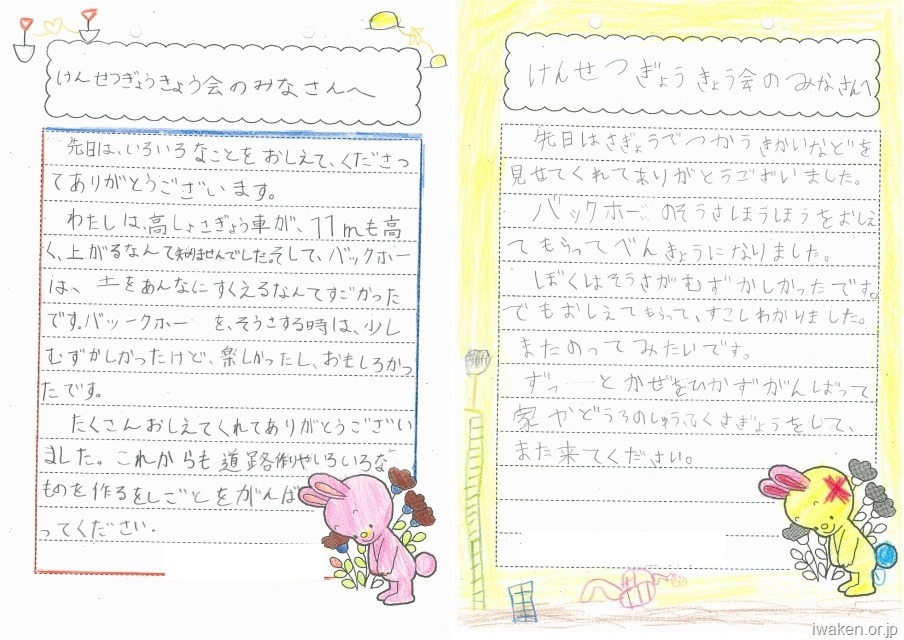 けんせつぎょうきょう会のみなさんへ
先日は、いろいろなことをおしえて、くださっ
てありがとうございます。
わたしは、高しょさぎょう車が、11mも高
く、上がるなんて知りませんでした。そして、バックホー
は、土をあんなにすくえるなんてすごかった
です。バックホー を、そうさする時は、少し
むずかしかったけど、楽しかったし、おもしろかっ
たです。
たくさんおしえてくれてありがとうござい
ました。これからも道路作りやいろいろな
ものを作るをしごとをがんば
ってください。
けんせつぎょうきょう会のみなさんへ
先日はさぎょうでつかうきかいなどを
見せてくれてありがとうございました。
バックホー のそうさしほうほうをおしえ
てもらってべんきょうになりました。
ぼくはそうさがむずかしかったです。
でもおしえてもらって、すこしわかりました。
またのってみたいです。
ずっーとかぜをひかずがんばって
家やどうろのしゅうふくさぎょうをして、
また来てください。
iwaken.or.jp